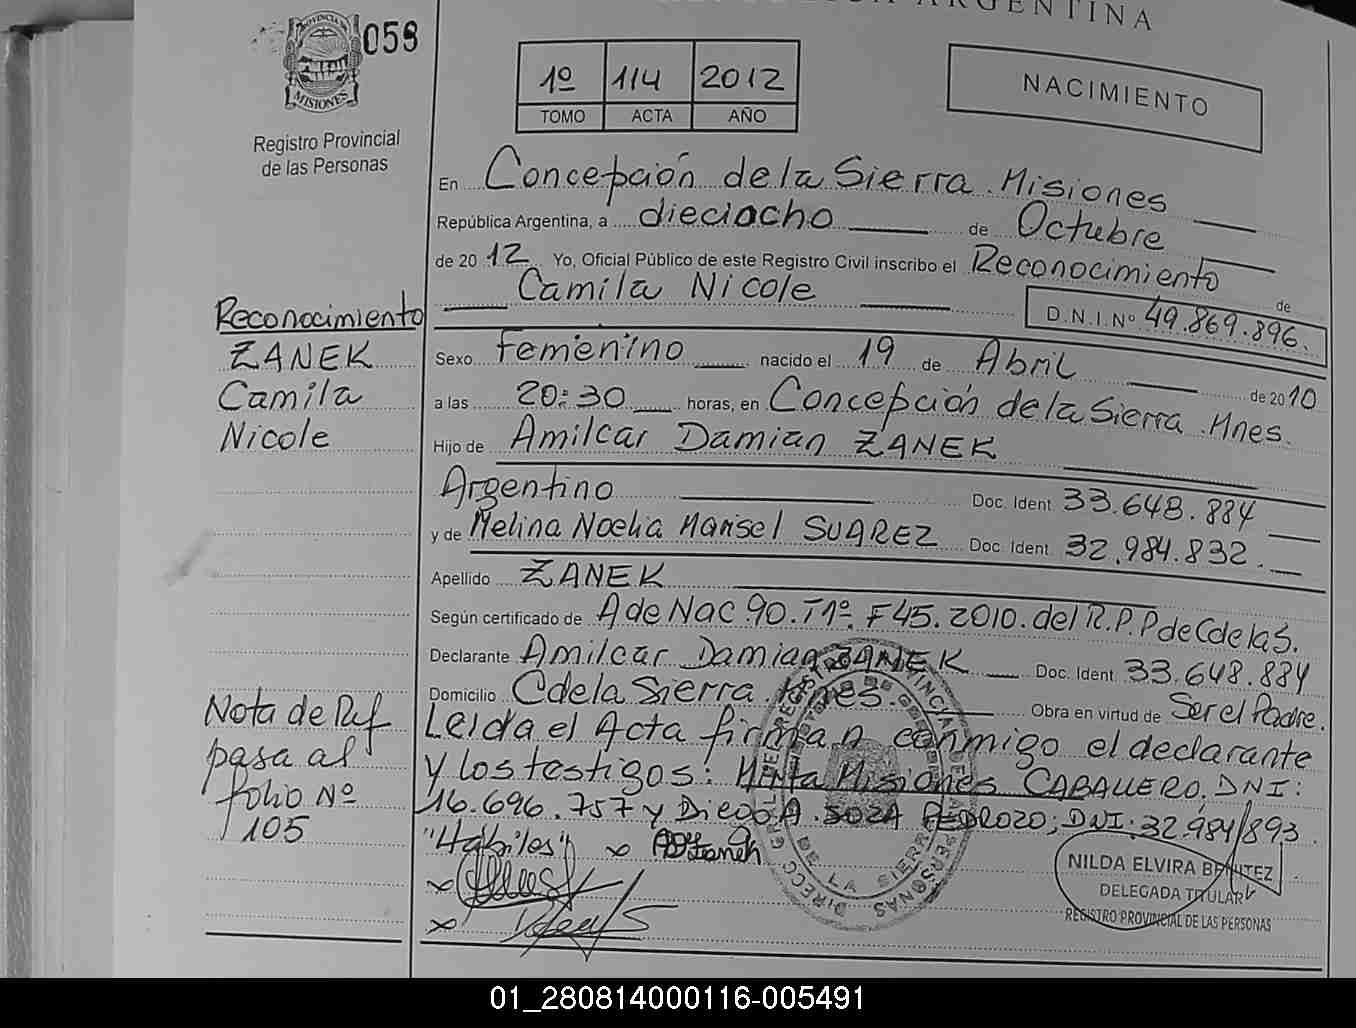 REPÚBLICA ARGENTINA
PROVINCIA DE
MISIONES
058
Registro Provincial
de las Personas
1º 114 2012
TOMO ACTA AÑO
NACIMIENTO
En Concepción de la Sierra. Misiones
República Argentina, a dieciocho de Octubre
de 2012 Yo, Oficial Público de este Registro Civil inscribo el Reconocimiento de
Camila Nicole
D.N.I.Nº 49.869.896.
Reconocimiento
ZANEK
Camila
Nicole
Sexo Femenino nacido el 19 de Abril de 2010
a las 20:30 horas, en Concepción de la Sierra. Mnes.
Hijo de Amilcar Damian ZANEK
Argentino Doc. Ident. 33.648.884
y de Melina Noelia Marisel SUAREZ Doc. Ident. 32.984.832.
Apellido ZANEK
Según certificado de A de Nac. 90. T1º. F45. 2010. del R.P.P de C de la S.
Declarante Amilcar Damian ZANEK Doc. Ident. 33.648.884
Domicilio C de la Sierra. Mnes. Obra en virtud de Ser el Padre.
Nota de Ref
pasa al
folio Nº
105
Leida el Acta firman conmigo el declarante
y los testigos: Mirta Misiones CABALLERO, DNI:
16.696.757 y Diego A. SOZA PEDROZO; DNI: 32.984.893.
"Hábiles" x
x
x
NILDA ELVIRA BENITEZ
DELEGADA TITULAR
REGISTRO PROVINCIAL DE LAS PERSONAS
01_280814000116-005491